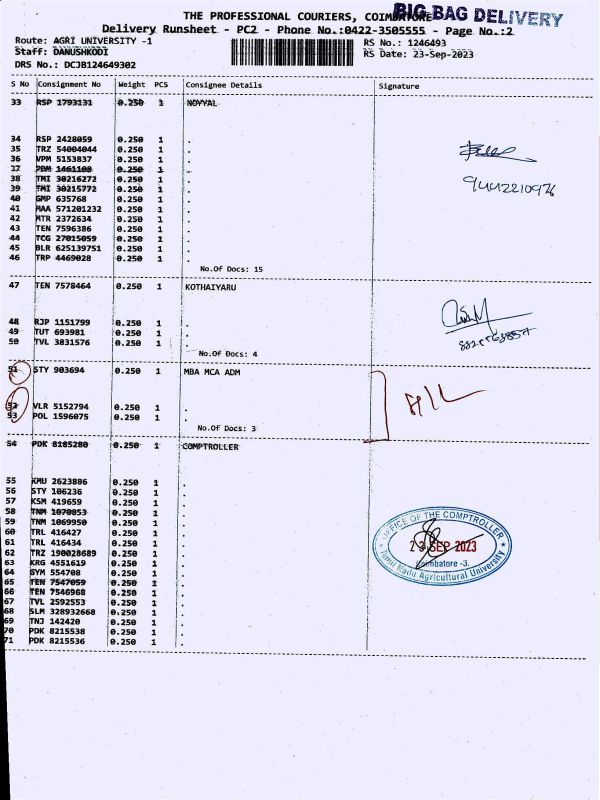 BIG BAG DELIVERY
THE PROFESSIONAL COURIERS, COIMBATORE
Delivery Runsheet - PC2 - Phone No.:0422-3505555 - Page No.:2
Route: AGRI UNIVERSITY -1 RS No.: 1246493
Staff: DANUSHKODI RS Date: 23-Sep-2023
DRS No.: DCJB124649302
S No Consignment No Weight PCS Consignee Details Signature
33 RSP 1793131 0.250 1 NOYYAL
34 RSP 2428059 0.250 1 .
35 TRZ 54004044 0.250 1 .
36 VPM 5153837 0.250 1 .
37 PDM 1461108 0.250 1 .
38 TMI 30216272 0.250 1 .
39 TMI 30215772 0.250 1 .
9442210976
40 GMP 635768 0.250 1 .
41 MAA 571201232 0.250 1 .
42 MTR 2372634 0.250 1 .
43 TEN 7596386 0.250 1 .
44 TCG 27015059 0.250 1 .
45 BLR 625139751 0.250 1 .
46 TRP 4469028 0.250 1 .
No.Of Docs: 15
47 TEN 7578464 0.250 1 KOTHAIYARU
48 RJP 1151799 0.250 1 .
49 TUT 693981 0.250 1 .
50 TVL 3831576 0.250 1 .
No.Of Docs: 4
51 STY 903694 0.250 1 MBA MCA ADM
52 VLR 5152794 0.250 1 .
53 POL 1596075 0.250 1 .
No.Of Docs: 3
54 PDK 8185280 0.250 1 COMPTROLLER
55 KMU 2623886 0.250 1 .
56 STY 106236 0.250 1 .
57 KSM 419659 0.250 1 .
58 TNM 1070853 0.250 1 .
59 TNM 1069950 0.250 1 .
60 TRL 416427 0.250 1 .
61 TRL 416434 0.250 1 .
62 TRZ 190028689 0.250 1 .
63 KRG 4551619 0.250 1 .
64 GYM 554708 0.250 1 .
65 TEN 7547059 0.250 1 .
66 TEN 7546968 0.250 1 .
67 TVL 2592553 0.250 1 .
68 SLM 328932668 0.250 1 .
69 TNJ 142420 0.250 1 .
70 PDK 8215538 0.250 1 .
71 PDK 8215536 0.250 1 .
OFFICE OF THE COMPTROLLER
23 SEP 2023
Coimbatore -3.
Tamil Nadu Agricultural University